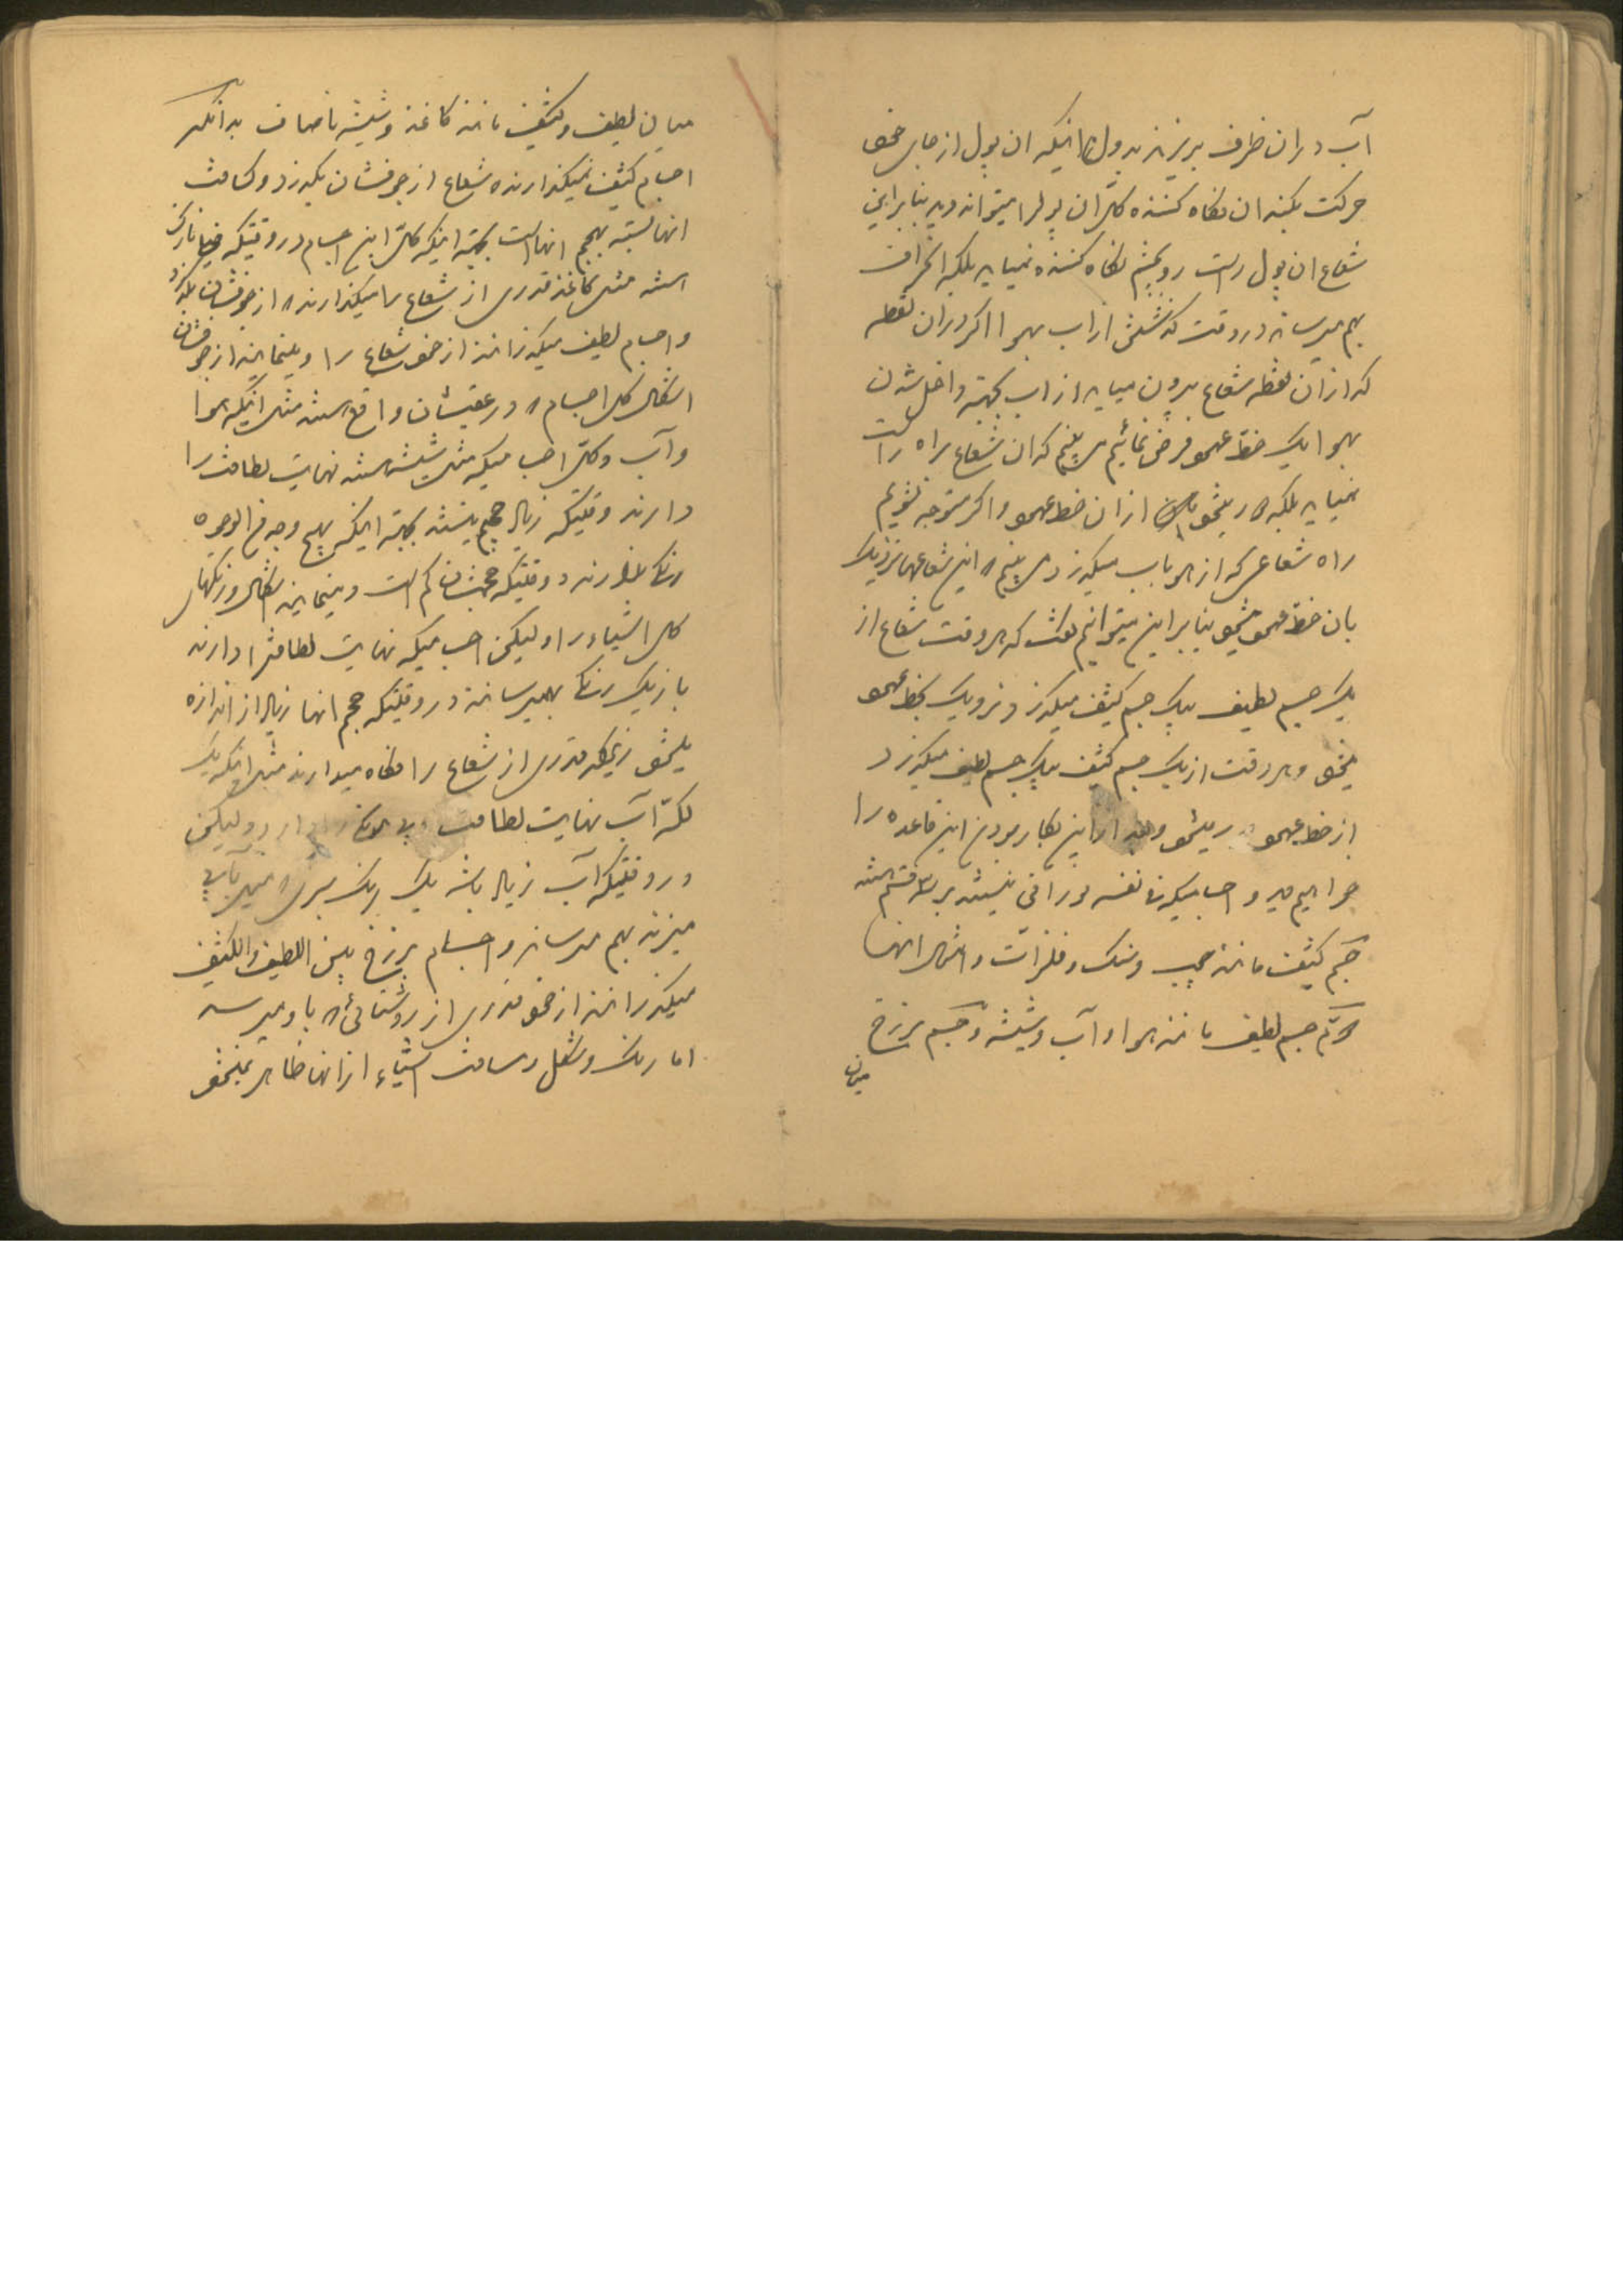 آب در ان ظرف بریزند بدون اینکه ان پول از جای خود
حرکت بکند ان نکاه کننده کل ان پول را میتواند دید بنابراین
شعاع ان پول راست رو بچشم نکاه کننده نمیاید بلکه انحراف
بهم میرساند در وقت کذشتنش از اب بهوا اکر در ان نقطه
که از ان نقطه شعاع بیرون میاید از اب بجهته داخل شدن
بهوا یک خط عمود فرض نمائیم می بینیم که ان شعاع براه راست
نمیاید بلکه دور میشود از ان خط عمود و اکر متوجه بشویم
راه شعاعی که از هوا باب میکذرد می بینیم که این شعاعها نزدیک
بان خط عمود میشود بنابراین میتوانیم کفت که هر وقت شعاع از
یک جسم لطیف بیک جسم کثیف میکذرد نزدیک بخط عمود
میشود و هر وقت از یک جسم کثیف بیک جسم لطیف میکذرد
از خط عمود دور میشود و بعد از این بکار بردن این قاعده را
خواهیم دید و اجسامیکه فی نفسه نورانی نیستند بر سه قسم هستند
جسم کثیف مانند چوب و سنک و فلزات و امثال انها
دویم جسم لطیف مانند هوا و آب و شیشه و جسم برزخ
میان
میان لطیف و کثیف مانند کاغذ و شیشه ناصاف بدانکه
اجسام کثیف نمیکذارند که شعاع از جوفشان بکذرد و کثافت
انها بسته بحجم انها است بجهته اینکه کل این اجسام در وقتیکه خیلی نازک
هستند مثل کاغذ قدری از شعاع را میکذارند که از جوفشان بکذرد
و اجسام لطیف میکذرانند از خود شعاع را و مینمایند از جوفشان
اشکال کل اجسام که در عقبشان واقع هستند مثل اینکه هوا
و آب و کل اجسامیکه مثل شیشه هستند نهایت لطافت را
دارند وقتیکه زیاد حجیم نیستند بجهته اینکه بهیچ وجه من الوجوه
رنک ندارند در وقتیکه حجمشان کم است و مینمایند اشکال و رنکهای
کل اشیاء را و لیکن اجسامیکه نهایت لطافت را دارند
باز یک رنک بهم میرسانند در وقتیکه حجم انها زیاد از اندازه
میشود زیراکه قدری از شعاع را نکاه میدارند مثل اینکه یک
لکه آب نهایت لطافت دارد و لیکن
در وقتیکه آب زیاد باشد یک رنک سبزی که
میزند بهم میرساند و اجسام برزخ بین اللطیف و الکثیف
میکذرانند از خود قدری از روشنائی که باو میرسد
اما رنک و شکل و مسافت اشیاء از انها ظاهر نمیشود